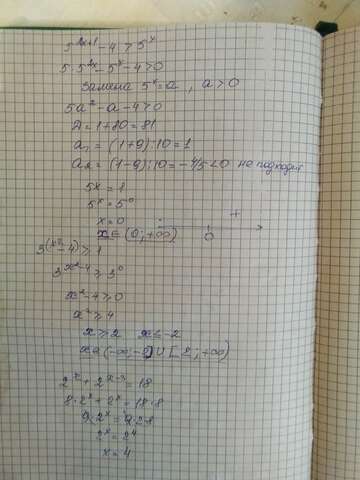 5^{2x+1} - 4 > 5^x
5·5^{2x} - 5^x - 4 > 0
Замена 5^x = a , a > 0
5a² - a - 4 > 0
D = 1 + 80 = 81
a₁ = (1+9):10 = 1
a₂ = (1-9):10 = -4/5 < 0 не подходит
5x = 1
5^x = 5^0
x = 0
+
x ∈ (0; +∞)
0
3^{(x²-4)} ≥ 1
3^{x²-4} ≥ 3^0
x² - 4 ≥ 0
x² ≥ 4
x ≥ 2 x ≤ -2
x ∈ (-∞; -2] ∪ [2; +∞)
2^x + 2^{x-3} = 18
8·2^x + 2^x = 18·8
9·2^x = 9·2·8
2^x = 2^4
x = 4